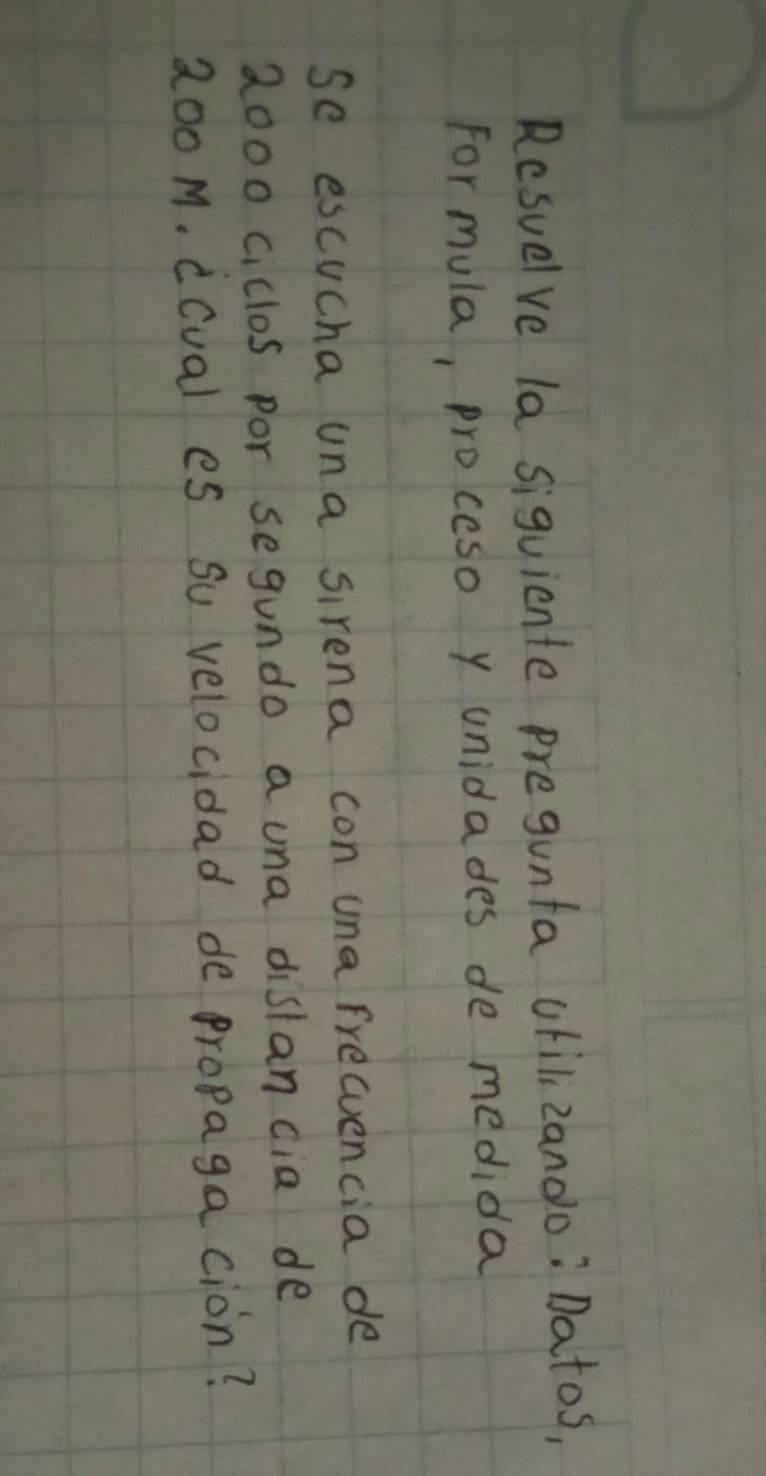 Resuelve la siguiente pregunta utilizando: Datos,
Formula, proceso y unidades de medida
Se escucha una sirena con una frecuencia de
2000 ciclos por segundo a una distancia de
200 M. ¿Cual es su velocidad de propagación?